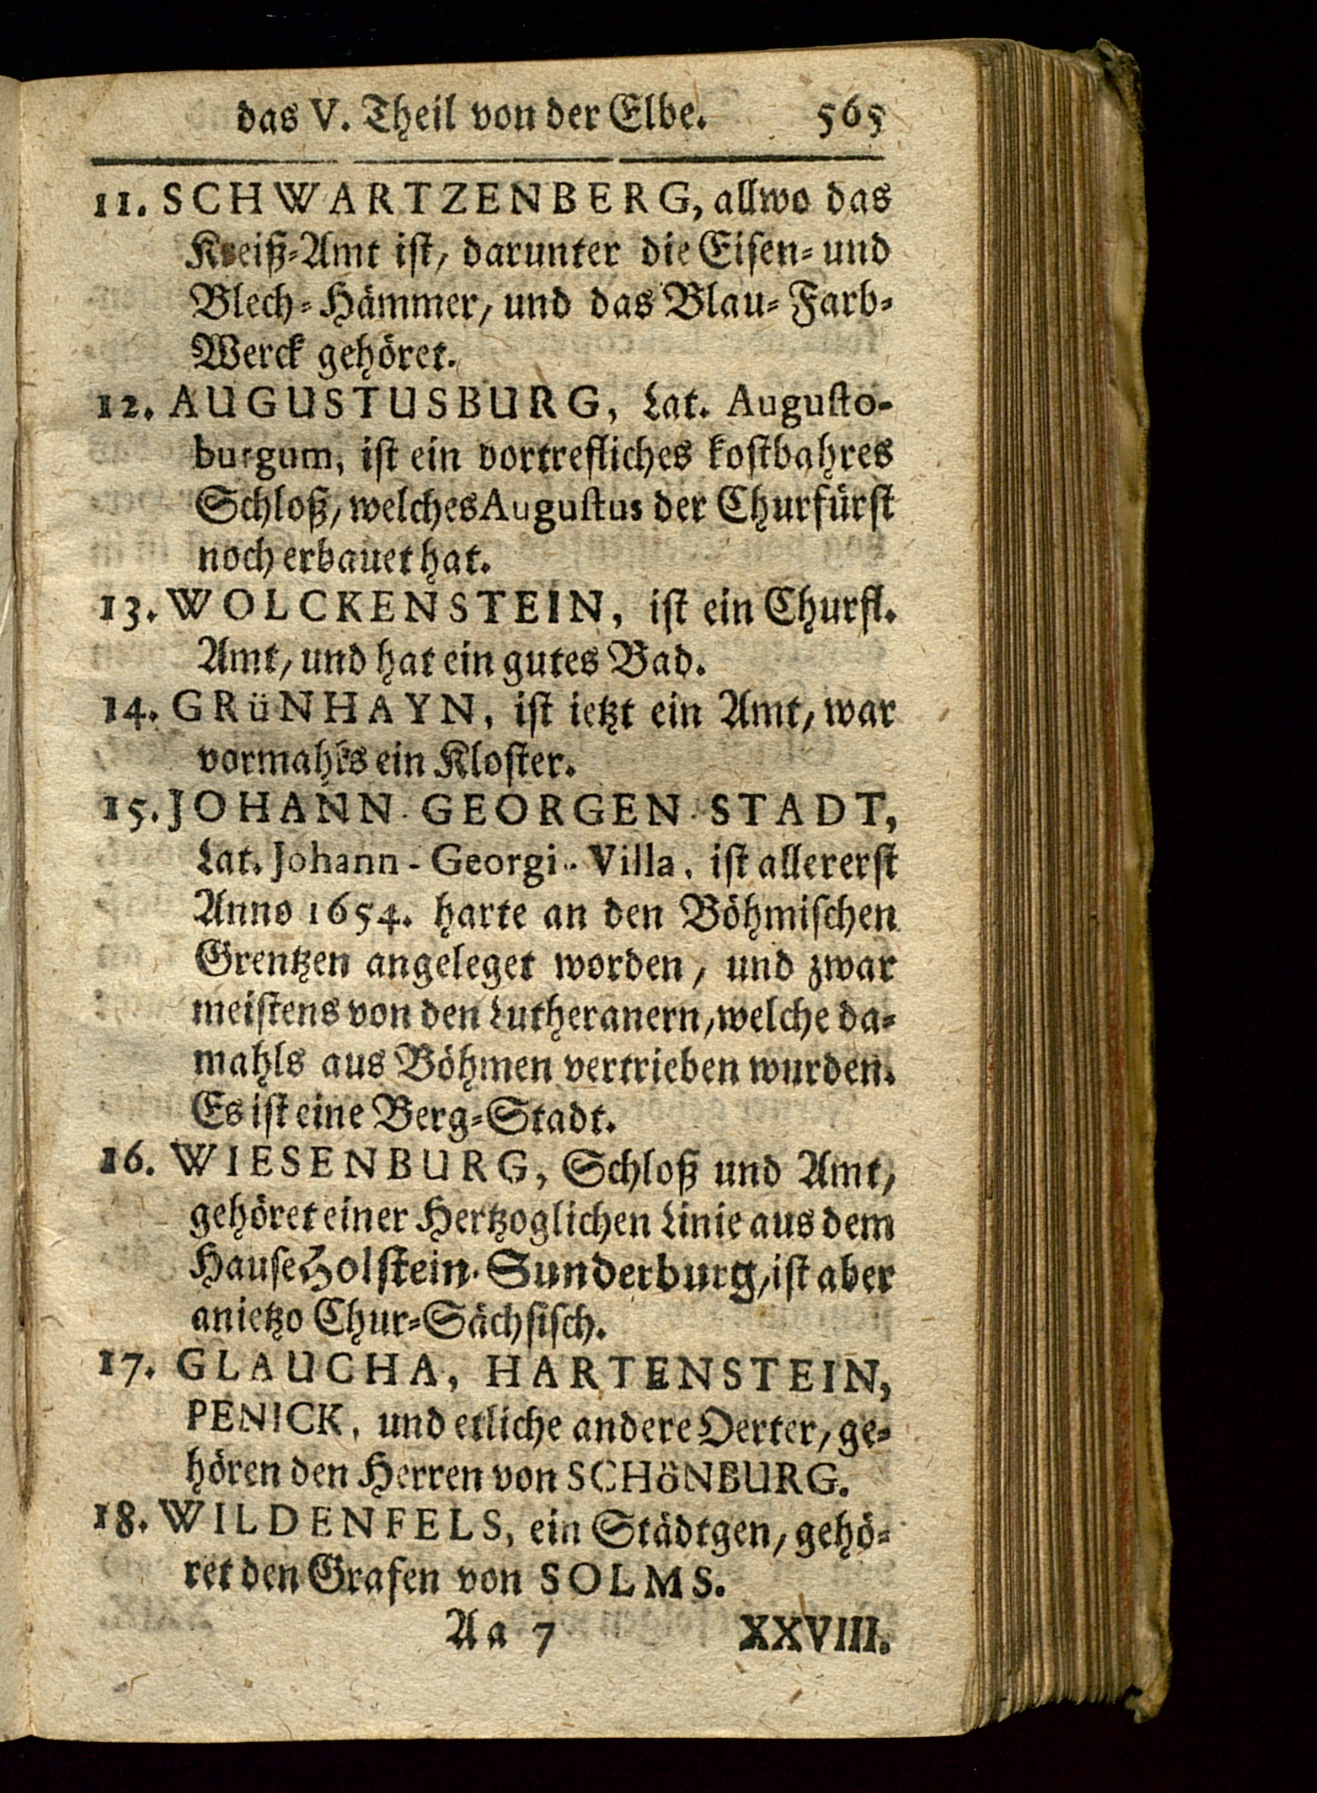 das V. Theil von der Elbe. 565
11. SCHWARTZENBERG, allwo das
Kreiß-Amt ist, darunter die Eisen- und
Blech-Hämmer, und das Blau-Farb-
Werck gehöret.
12. AUGUSTUSBURG, Lat. Augusto-
burgum, ist ein vortrefliches kostbahres
Schloß, welches Augustus der Churfürst
noch erbauet hat.
13. WOLCKENSTEIN, ist ein Churfl.
Amt, und hat ein gutes Bad.
14. GRüNHAYN, ist ietzt ein Amt, war
vormahls ein Kloster.
15. JOHANN-GEORGEN-STADT,
Lat. Johann-Georgi-Villa, ist allererst
Anno 1654. harte an den Böhmischen
Grentzen angeleget worden, und zwar
meistens von den Lutheranern, welche da-
mahls aus Böhmen vertrieben wurden.
Es ist eine Berg-Stadt.
16. WIESENBURG, Schloß und Amt,
gehöret einer Hertzoglichen Linie aus dem
Hause Holstein-Sunderburg, ist aber
anietzo Chur-Sächsisch.
17. GLAUCHA, HARTENSTEIN,
PENICK, und etliche andere Oerter, ge-
hören den Herren von SCHöNBURG.
18. WILDENFELS, ein Städtgen, gehö-
ret den Grafen von SOLMS.
Aa 7 XXVIII.